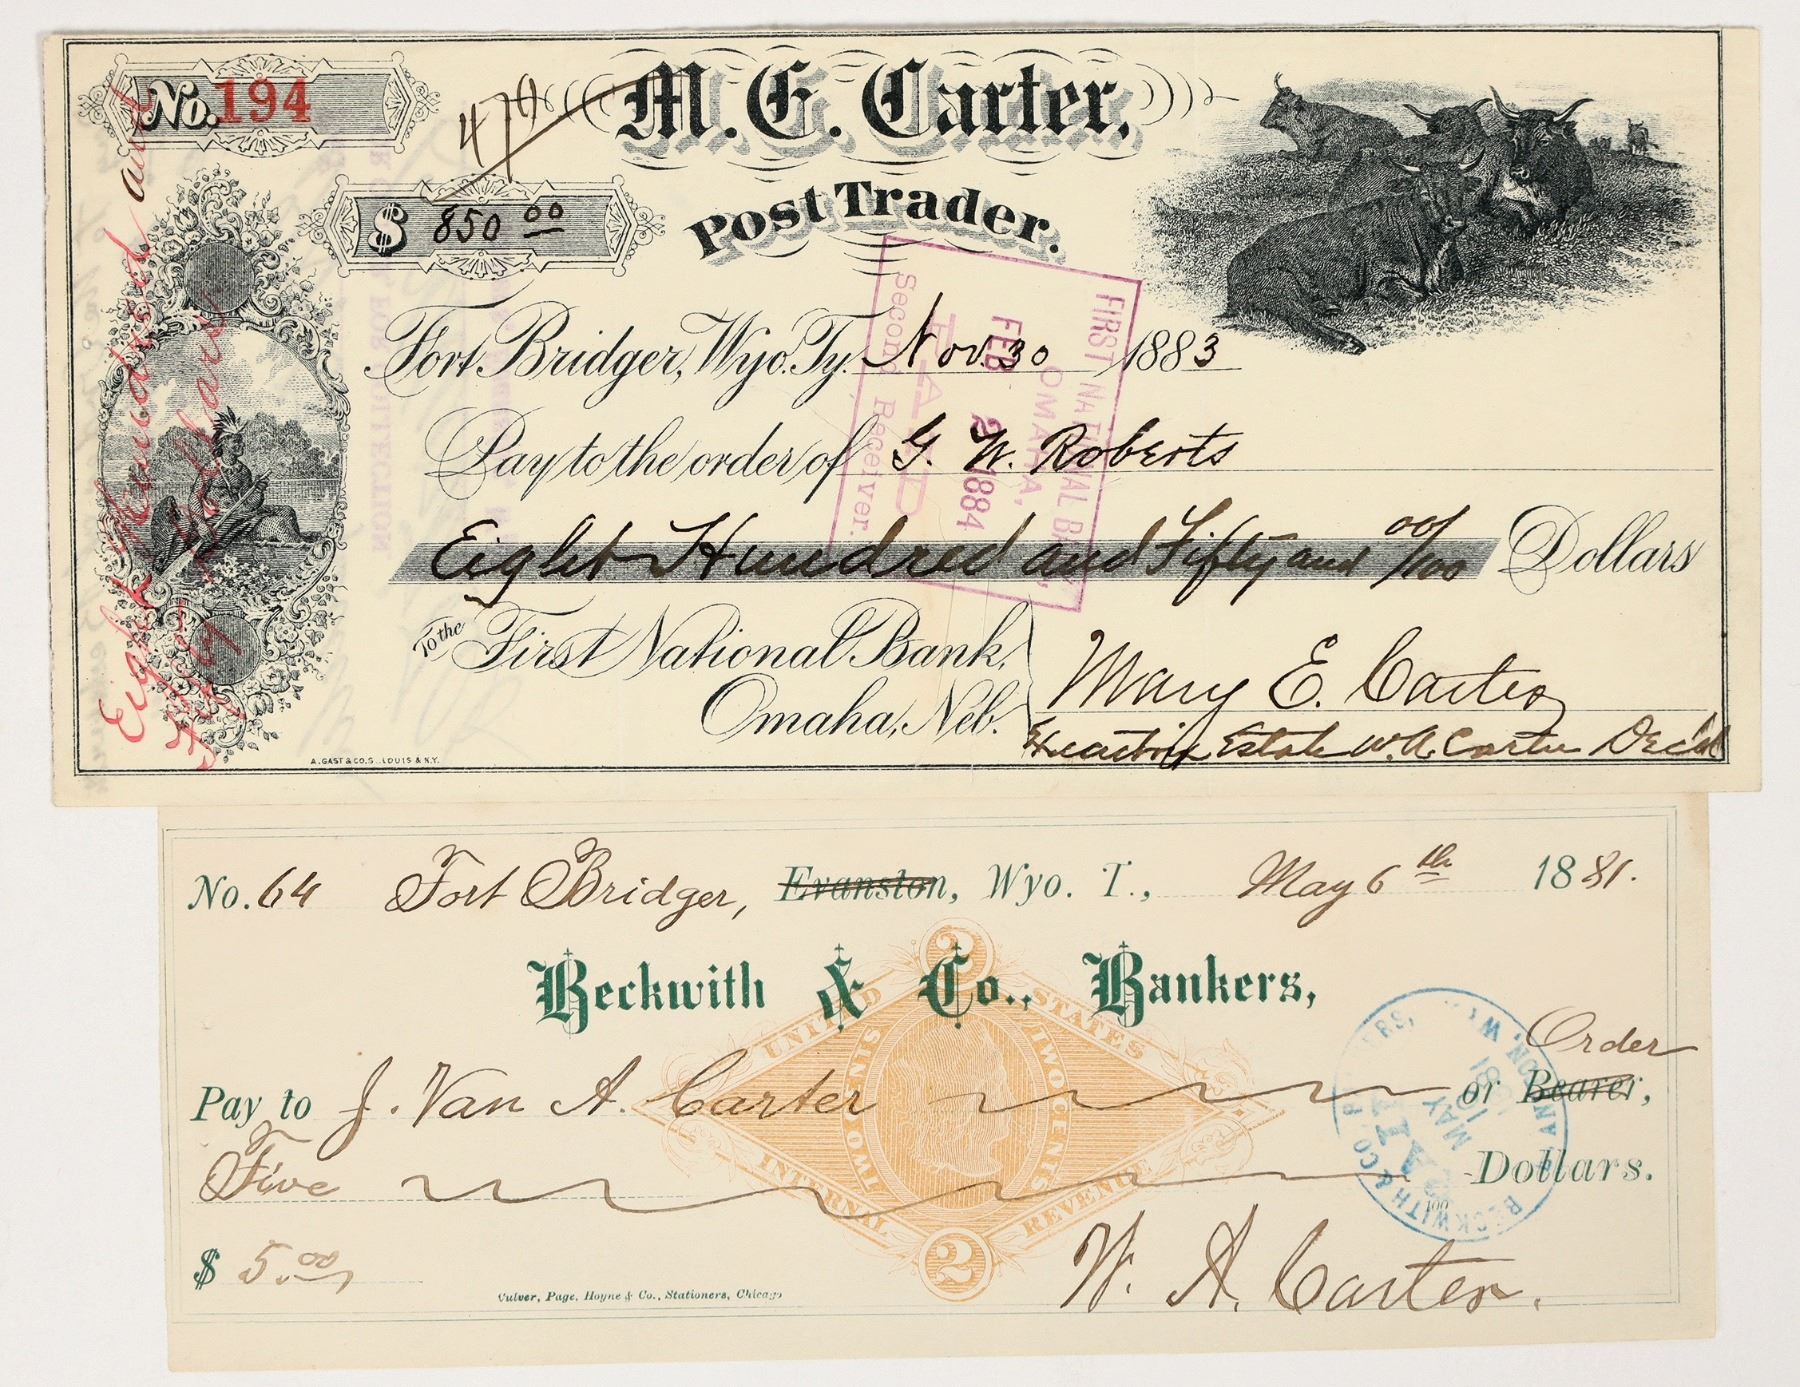 No. 194
479
M. E. Carter,
Post Trader.
$ 850 00
Fort Bridger, Wyo. Ty. Nov. 30 1883
Pay to the order of G. W. Roberts
Eight Hundred and Fifty and 00/100 Dollars
To the First National Bank,
Omaha, Neb.
Mary E. Carter
Executrix Estate W. A. Carter Dec'd
A. GAST & CO. S. LOUIS & N.Y.
Eight Hundred and
Fifty Dollars
FIRST NATIONAL BANK,
OMAHA,
FEB 2 1884
PAID
Second Receiver.
No. 64 Fort Bridger, Evanston, Wyo. T., May 6th 1881.
Beckwith & Co., Bankers,
Pay to J. Van A. Carter or Bearer, Order
Five Dollars.
100
$ 5.00
W. A. Carter.
Culver, Page, Hoyne & Co., Stationers, Chicago
2
UNITED STATES
TWO CENTS TWO CENTS
INTERNAL REVENUE
2
BECKWITH & CO. BANKERS,
PAID
MAY 1881